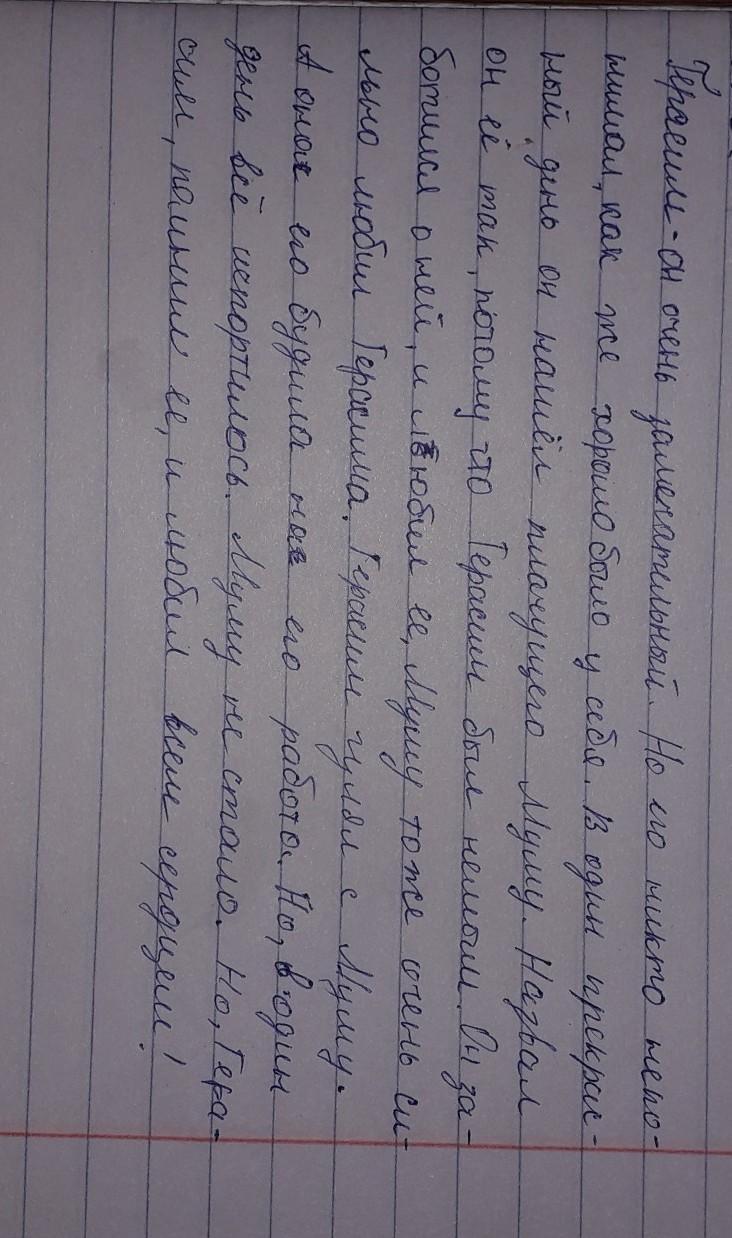 Герасим - он очень замечательный. Но его никто непо-
нимал, как же хорошо было у себя. В один прекрас-
ный день он нашёл плачущего Муму. Назвал
он её так, потому что Герасим был немым. Он за-
ботился о ней, и любил ее, Муму тоже очень си-
льно любил Герасима. Герасим гулял с Муму.
А она его будила на его работа. Но, в один
день всё испортилось. Муму не стало. Но, Гера-
сим, помнил ее, и любил всем сердцем!